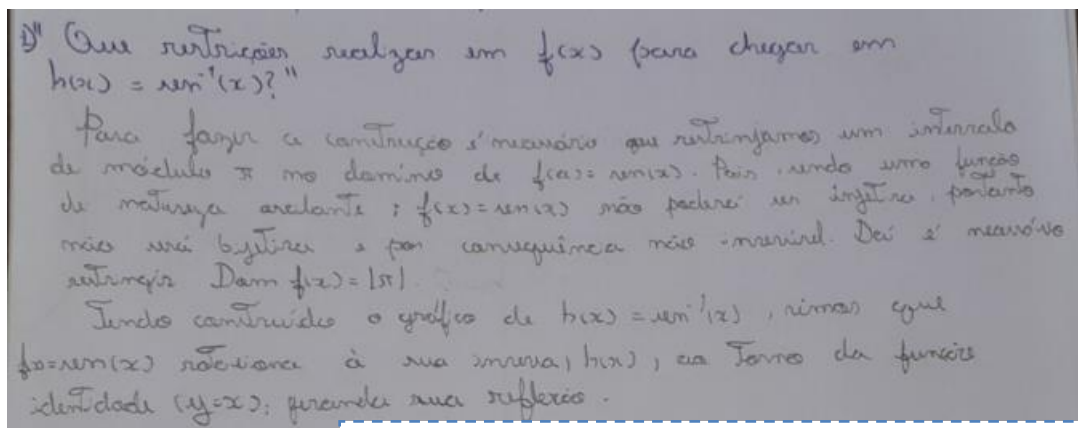 1) "Que restrições realizar em f(x) para chegar em
h(x) = sen⁻¹(x)?"
Para fazer a construção é necessário que restrinjamos um intervalo
de módulo π no domínio de f(x) = sen(x). Pois, sendo uma função
de natureza oscilante ; f(x) = sen(x) não poderá ser injetiva, portanto
não será bijetiva e por consequência não inversível. Daí é necessário
restringir Dom f(x) = |π|.
Tendo construído o gráfico de h(x) = sen⁻¹(x), vimos que
f(x) = sen(x) rotaciona à sua inversa, h(x), ao torno da função
identidade (y=x); gerando sua reflexão.